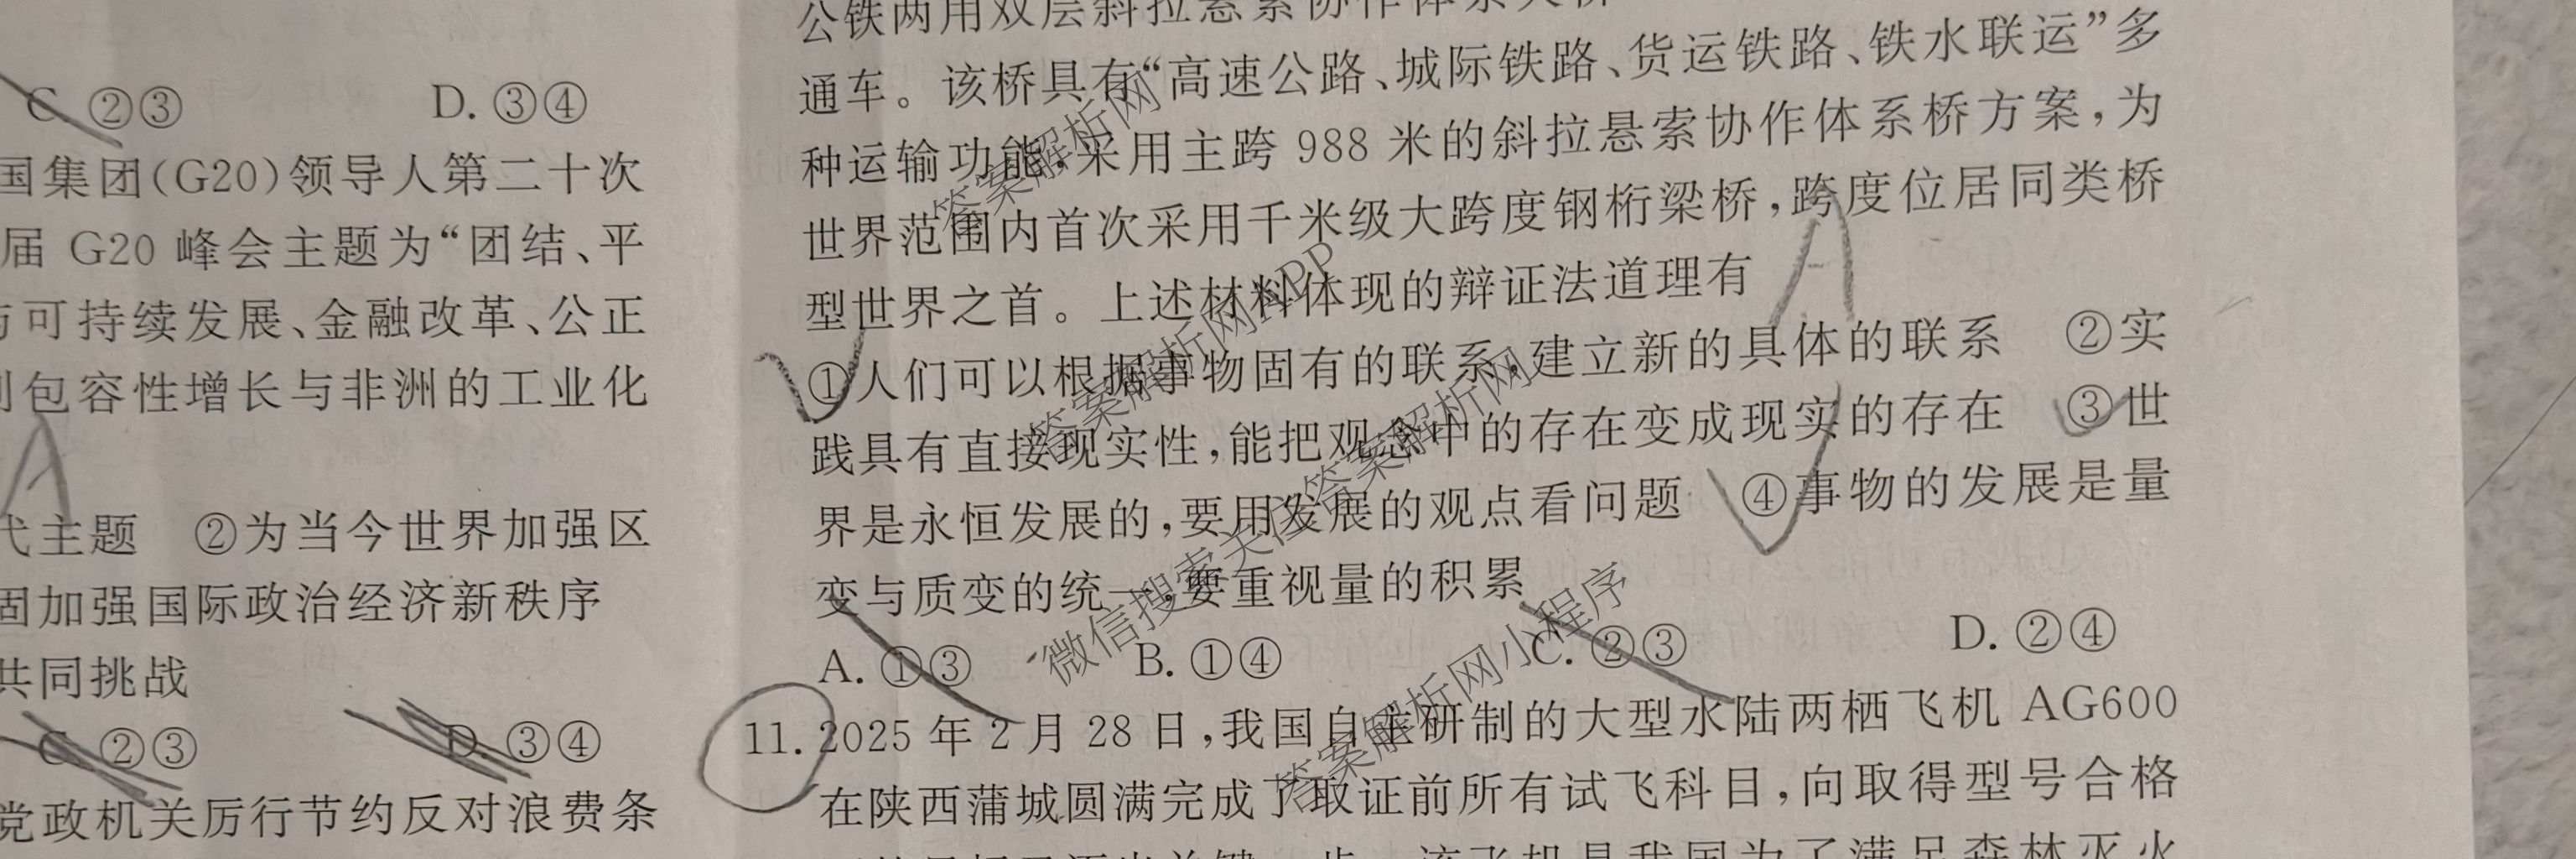 C. ②③ D. ③④
国集团(G20)领导人第二十次
届 G20 峰会主题为“团结、平
可持续发展、金融改革、公正
包容性增长与非洲的工业化
A
代主题 ②为当今世界加强区
固加强国际政治经济新秩序
共同挑战
C. ②③ D. ③④
党政机关厉行节约反对浪费条
公铁两用双层斜拉悬索协作体系大桥
通车。该桥具有“高速公路、城际铁路、货运铁路、铁水联运”多
种运输功能,采用主跨 988 米的斜拉悬索协作体系桥方案,为
世界范围内首次采用千米级大跨度钢桁梁桥,跨度位居同类桥
型世界之首。上述材料体现的辩证法道理有
A
①人们可以根据事物固有的联系,建立新的具体的联系 ②实
践具有直接现实性,能把观念中的存在变成现实的存在 ③世
界是永恒发展的,要用发展的观点看问题 ④事物的发展是量
变与质变的统一,要重视量的积累
A. ①③ B. ①④ C. ②③ D. ②④
11. 2025 年 2 月 28 日,我国自主研制的大型水陆两栖飞机 AG600
在陕西蒲城圆满完成了取证前所有试飞科目,向取得型号合格
该飞机是我国为了满足森林灭火
答案解析网
答案解析网APP
微信搜索关注答案解析网
答案解析网小程序